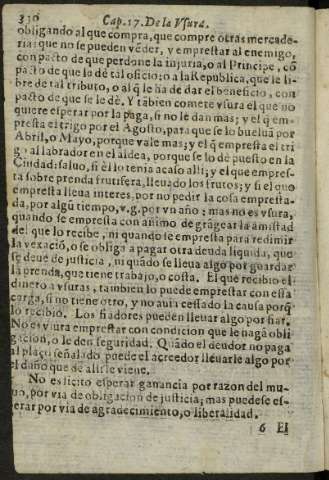 330 Cap. 17. De la Vsura.
obligando al que compra, que compre otras mercade-
rias: que no se pueden vẽder, y emprestar al enemigo,
cõ pacto de que perdone la injuria, o al Principe, cõ
pacto de que le dè tal oficio: o a la Republica, que le li-
bre de tal tributo, o al q̃ le ha de dar el beneficio, con
pacto de que se le dè. Y tãbien comete vsura el que no
quiere esperar por la paga, si no le dan mas; y el q̃ em-
presta el trigo por el Agosto, para que se lo bueluã por
Abril, o Mayo, porque vale mas; y el q̃ empresta el tri
go al labrador en el aldea, porque se lo dè puesto en la
Ciudad: saluo, si èl lo tenia acaso alli; y el que empres-
ta sobre prenda frutifera, lleuãdo los frutos; y si el que
empresta lleua interes por no pedir la cosa empresta-
da, por algũ tiempo, v.g. por vn año: mas no es vsura,
quando se empresta con animo de grãgear la amistad
del que lo recibe, ni quando se empresta para redimir
la vexaciõ, o se obliga a pagar otra deuda liquida, que
se deue de justicia, ni quãdo se lleua algo por guardar
la prenda, que tiene trabajo, o costa. El que recibio el
dinero a vsuras, tambien lo puede emprestar con essa
carga, si no tiene otro, y no auia cessado la causa porq̃
lo recibiò. Los fiadores pueden lleuar algo por fiar.
No es vsura emprestar con condicion que le hagã obli
gacion, o le den seguridad. Quãdo el deudor no paga
al plaço señalado puede el acreedor lleuarle algo por
el daño que de alli le viene.
No es licito esperar ganancia por razon del mu-
tuo, por via de obligacion de justicia; mas puedese es-
perar por via de agradecimiento, o liberalidad.
6 El